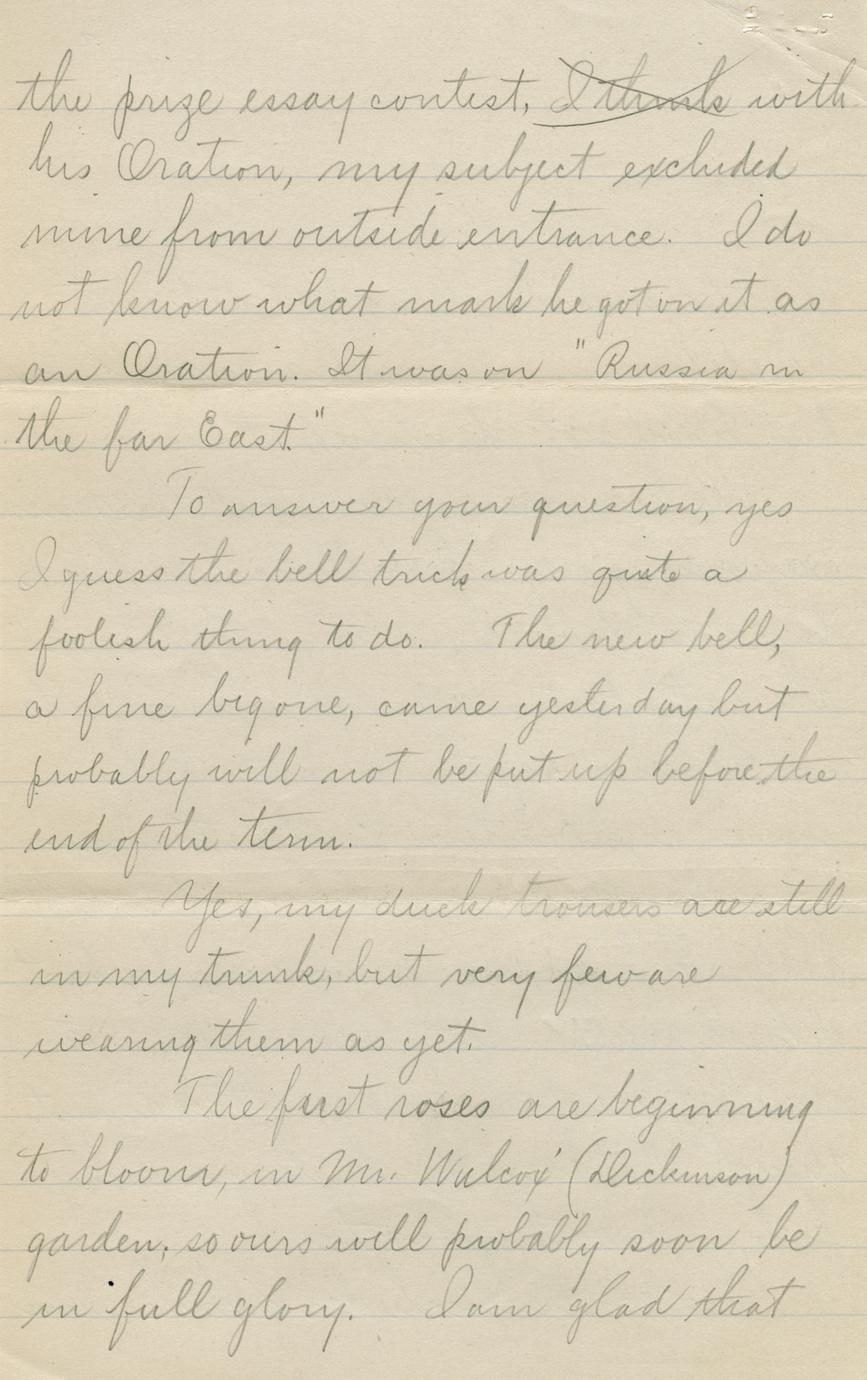 the prize essay contest, I think with
his Oration, my subject excluded
mine from outside entrance. I do
not know what mark he got on it as
an Oration. It was on "Russia in
the far East."
To answer your question, yes
I guess the bell trick was quite a
foolish thing to do. The new bell,
a fine big one, came yesterday but
probably will not be put up before the
end of the term.
Yes, my duck trousers are still
in my trunk, but very few are
wearing them as yet.
The first roses are beginning
to bloom, in Mr. Wilcox' (Dickinson)
garden, so ours will probably soon be
in full glory. I am glad that